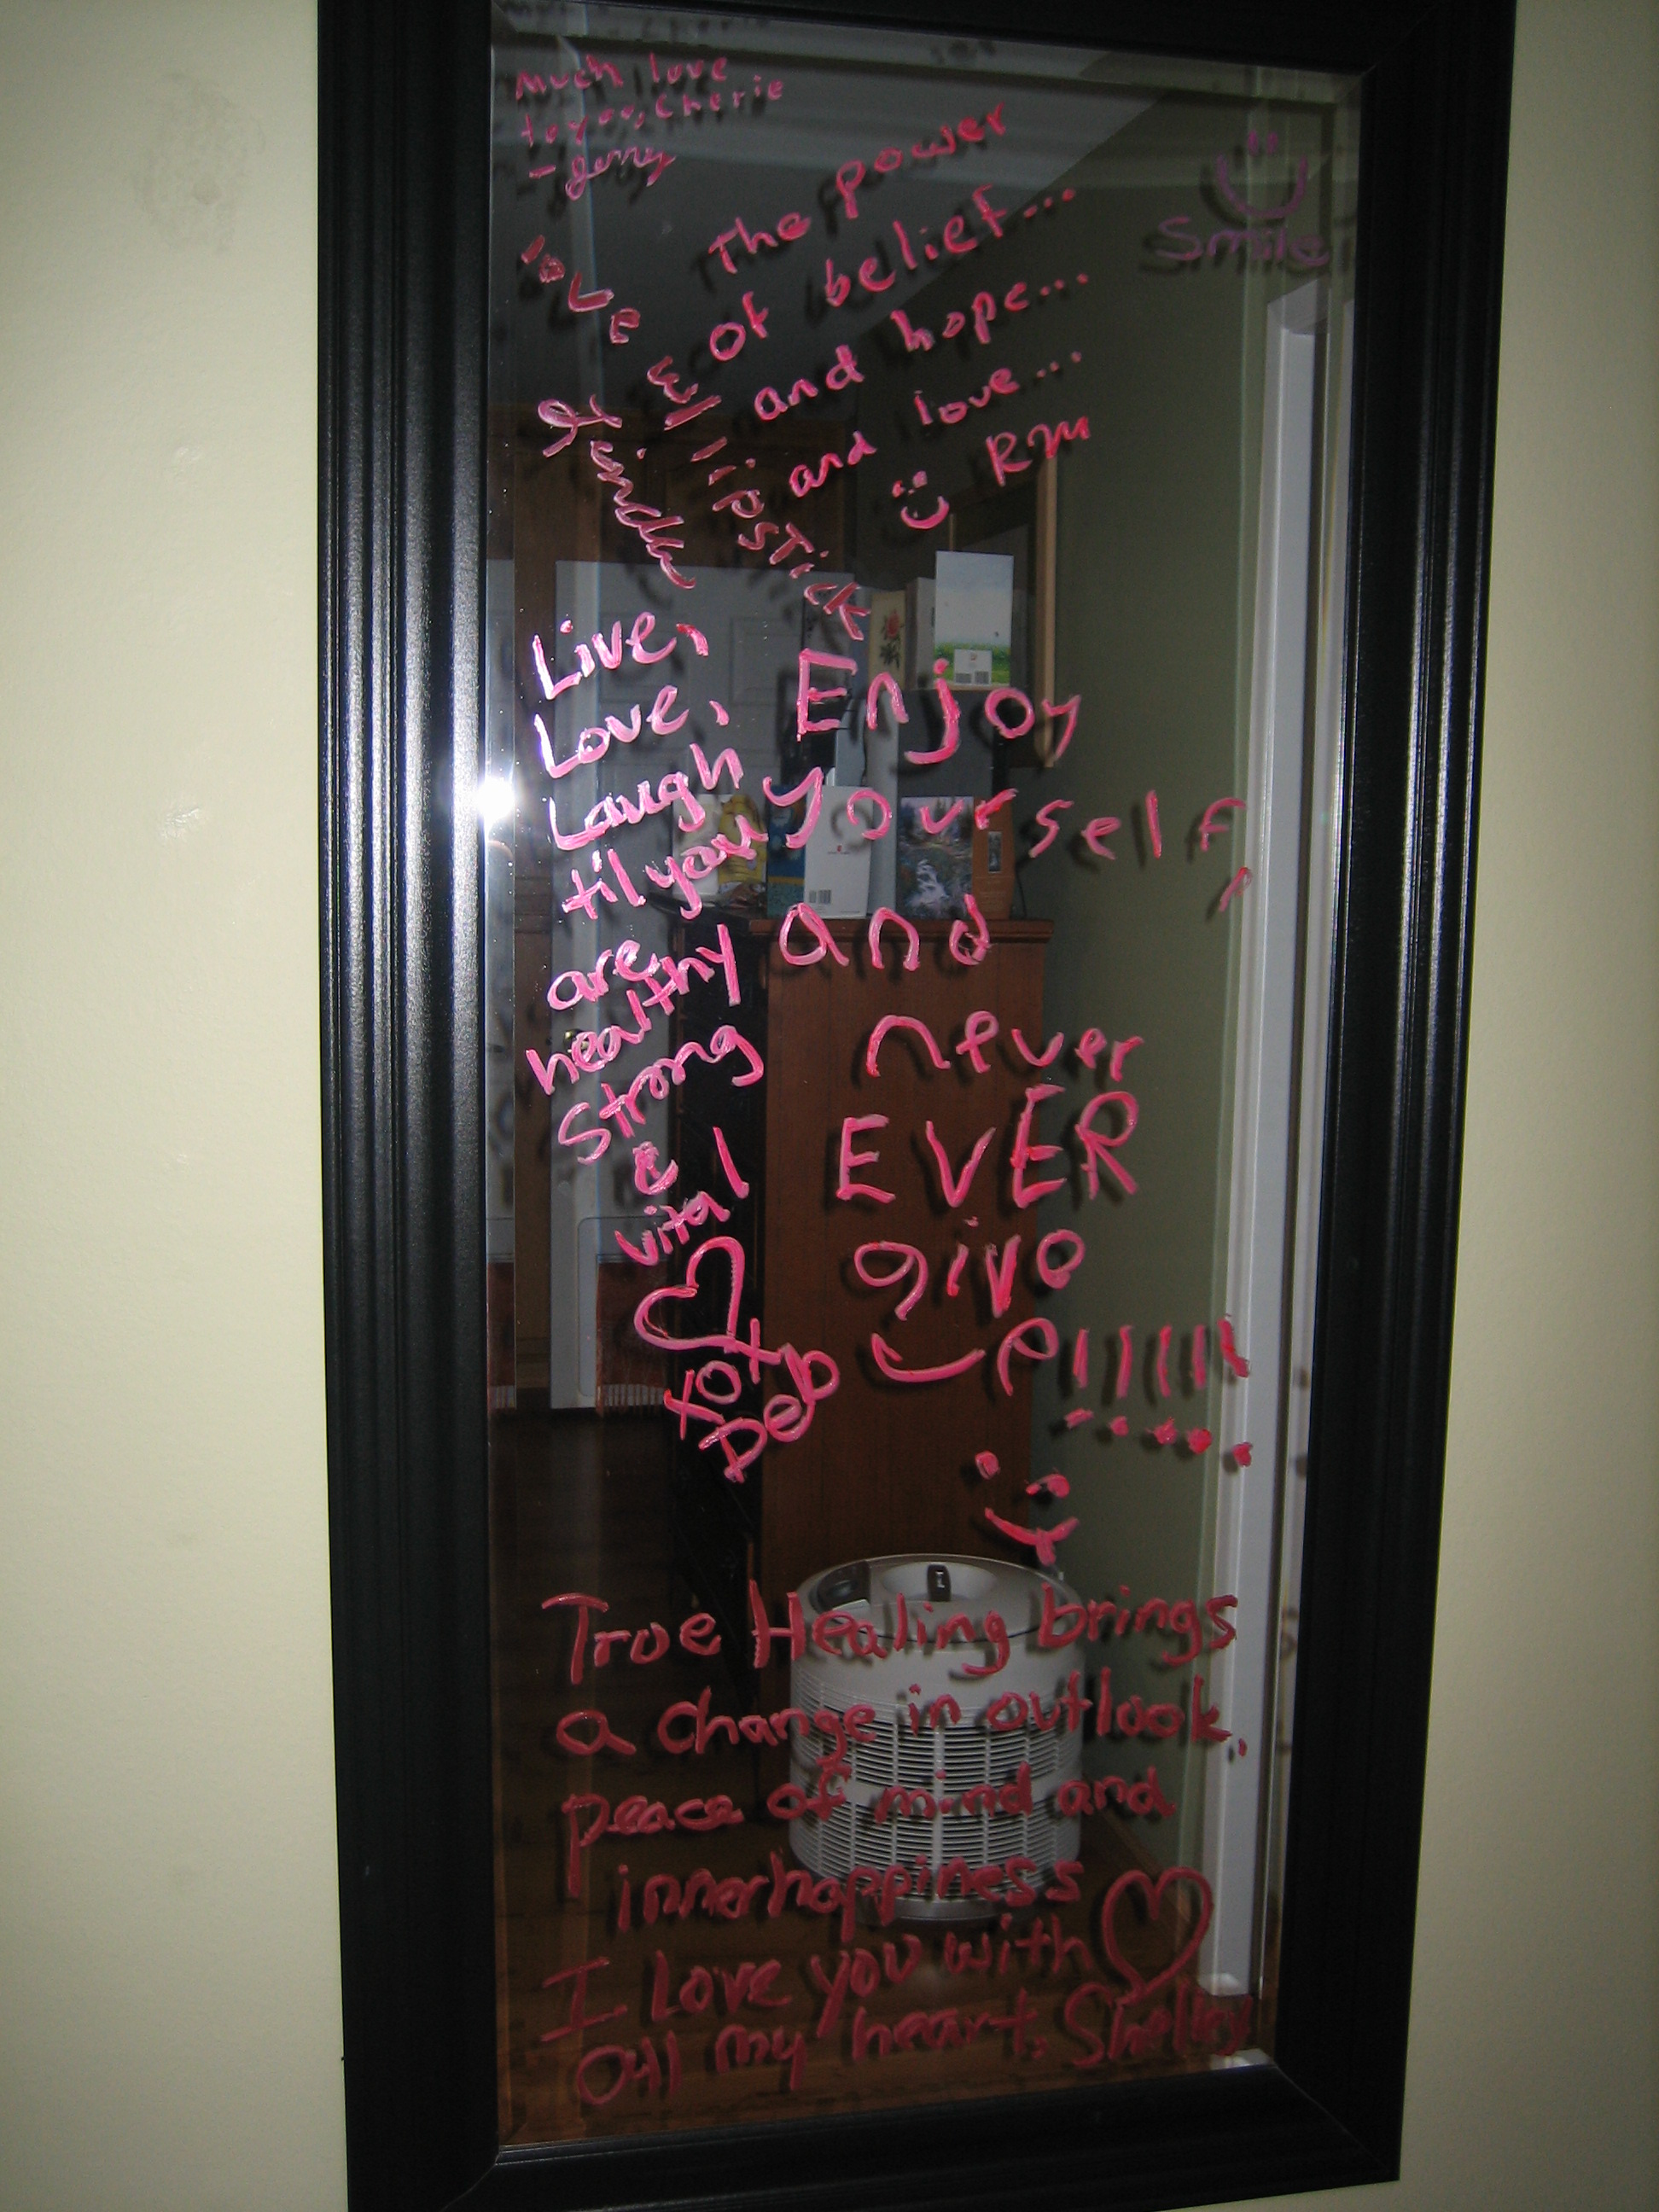 Much love
to you, Cherie
- Jerry
The power
of belief...
and hope...
and love...
RM
Smile
love w/ lipstick
Linda
Live,
Love,
Laugh
til you
are
healthy
Strong
&
vital
XOX
Deb
Enjoy
yourself,
and
never
EVER
give
up!!!!!
True Healing brings
a change in outlook,
peace of mind and
inner happiness
I Love you with
all my heart, Shelley